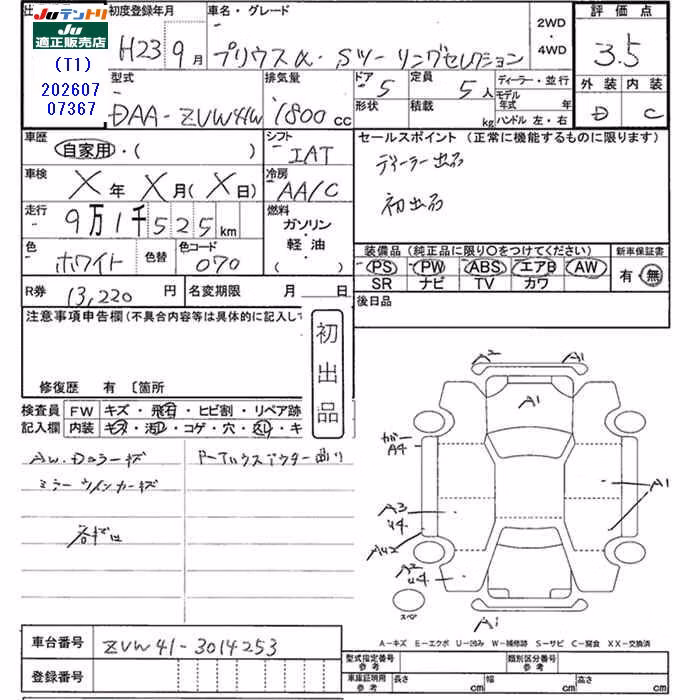 JUテントリ
JU適正販売店
(T1)
202607
07367
初度登録年月
H23年9月
車名・グレード
プリウスα・Sツーリングセレクション
2WD
・
4WD
評価点
3.5
外装 内装
D C
型式
DAA-ZVW41W
排気量
1800cc
ドア
5
形状
定員
5人
積載
kg
ディーラー・並行
モデル
年式 年
ハンドル 左・右
車歴
自家用・( )
シフト
IAT
車検
X年X月(X日)
冷房
AA/C
走行
9万1千525km
燃料
ガソリン
・
軽油
( )
色
ホワイト
色替
色コード
070
R券
13,220円
名変期限 月 日
セールスポイント(正常に機能するものに限ります)
ディーラー出品
初出品
装備品(純正品に限り○をつけてください)
PS PW ABS エアB AW
SR ナビ TV カワ
新車保証書
有・無
後日品
注意事項申告欄(不具合内容等は具体的に記入して
初出品
修復歴 有 〔箇所
検査員
記入欄
FW キズ・飛石・ヒビ割・リペア跡
内装 キズ・汚レ・コゲ・穴・スレ・キ
AW.Dカラーキズ
ミラーウインカーキズ
A2 A1
A1
A4
A1
A3
U4
A2
U4
スペア
A1
A-キズ E-エクボ U-凹み W-補修跡 S-サビ C-腐食 XX-交換済
車台番号
ZVW41-3014253
登録番号
型式指定番号
参考
類別区分番号
参考
車庫証明用
参考
長さ cm
幅 cm
高さ cm